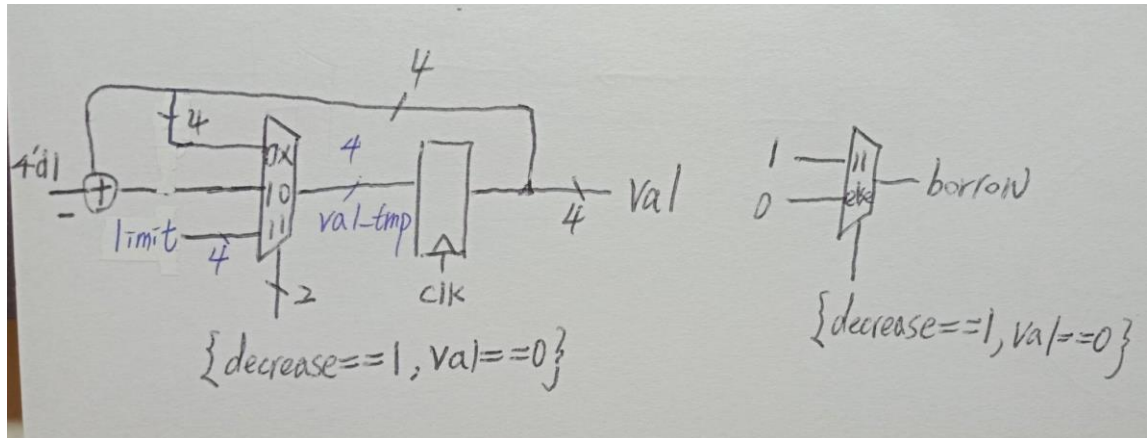 4
4
4'd1
-
+
0x
10
11
limit
4
4
val_tmp
2
clk
4
val
{decrease==1, val==0}
1
0
11
else
borrow
{decrease==1, val==0}